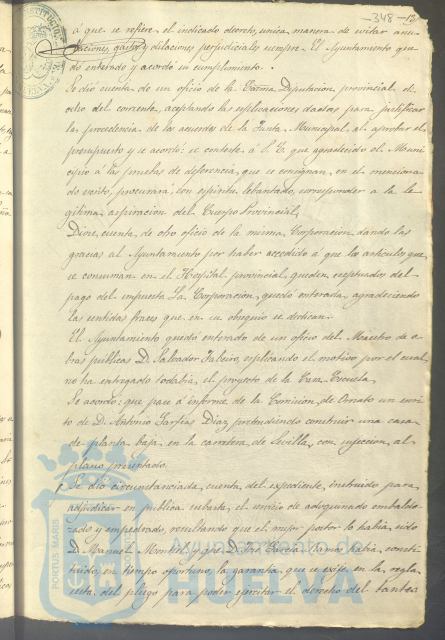 -348-
á que se refiere el indicado decreto, unica manera de evitar anu-
laciones, gastos y dilaciones perjudiciales siempre. El Ayuntamiento que-
dó enterado y acordó su cumplimiento.
Se dio cuenta de un oficio de la Excma Diputacion provincial
ocho del corriente, aceptando las esplicaciones dadas para justificar
la procedencia de los acuerdos de la Junta Municipal al aprobar el
presupuesto y se acordó: se conteste á S. E. que agradecido el Muni-
cipio á las pruebas de deferencia, que se consignan, en el menciona-
do escrito, procurará, con espiritu lebantado, corresponder a la le-
gitima aspiracion del Cuerpo Provincial.
Diose cuenta de otro oficio de la misma Corporacion, dando las
gracias al Ayuntamiento por haber accedido a que los articulos, que
se consuman en el Hospital provincial, queden esceptuados del
pago del impuesto. La Corporacion, quedó enterada, agradeciendo
las sentidas frases que en su obsequio se dedican.
El Ayuntamiento quedó enterado de un oficio del Maestro de o-
bras publicas D. Salvador esplicando el motivo por el cual
no ha entregado todabia, el proyecto de la Casa Escuela.
Se acordó: que pase á informe de la Comision de Ornato un escri-
to de D. Antonio Garfias Diaz pretendiendo construir una casa
de planta baja en la carretera de Sevilla, con sujecion al
plano presentado.
Se dio circunstanciada cuenta del expediente, instruido para
adjudicar en publica subasta, el servicio de adoquinado embaldo-
sado y empedrado, resultando que el mejor postor lo habia sido
D. Manuel Montiel y que D. José Garcia Ramos habia consti-
tuido, en tiempo oportuno, la garantia que se exije en la regla
sesta del pliego para poder ejercitar el derecho del tanteo
PORTUS MARIS
Ayuntamiento de
HUELVA